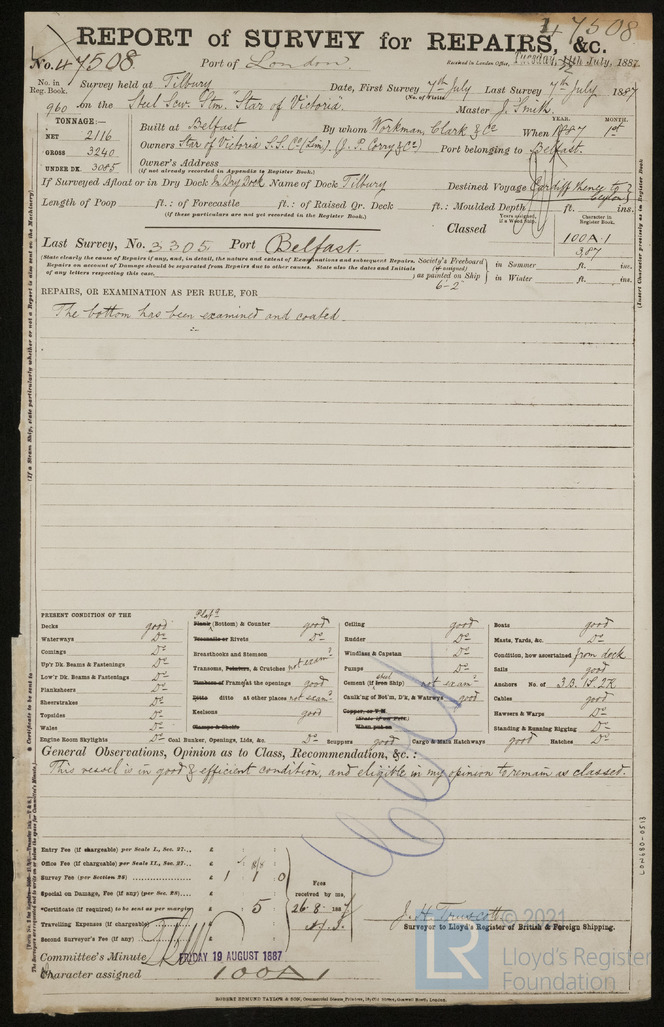 47508
REPORT of SURVEY for REPAIRS, &c.
No. 47508. Port of London. Received in London Office, Tuesday, July, 1887
No. in Reg. Book. Survey held at Tilbury Date, First Survey 7th July Last Survey 7th July 1887
(No. of Visits)
960 on the Steel Scw. Stm. "Star of Victoria. Master J. Smith.
TONNAGE:—
NET 2116
GROSS 3240
UNDER DK. 3085
Built at Belfast By whom Workman, Clark & Co When 1887 1st
YEAR. MONTH.
Owners Star of Victoria S.S. Co (Lim). (J. P. Corry & Co) Port belonging to Belfast.
Owner's Address
(if not already recorded in Appendix to Register Book.)
If Surveyed Afloat or in Dry Dock In Dry Dock Name of Dock Tilbury Destined Voyage Cardiff thence to Ceylon
Length of Poop ft.: of Forecastle ft.: of Raised Qr. Deck ft.: Moulded Depth ft. ins.
(If these particulars are not yet recorded in the Register Book.)
Years assigned, if a Wood Ship.
Character in Register Book.
Classed 100A1
3,87
Last Survey, No. 3305 Port Belfast.
(State clearly the cause of Repairs if any, and, in detail, the nature and extent of Examinations and subsequent Repairs. Repairs on account of Damage should be separated from Repairs due to other causes. State also the dates and Initials of any letters respecting this case.
Society's Freeboard (if assigned) as painted on Ship 6-2 in Summer ft. ins.
in Winter ft. ins.
REPAIRS, OR EXAMINATION AS PER RULE, FOR
The bottom has been examined and coated.
PRESENT CONDITION OF THE
Decks good
Waterways Do
Comings Do
Up'r Dk. Beams & Fastenings Do
Low'r Dk. Beams & Fastenings Do
Planksheers Do
Sheerstrakes Do
Topsides Do
Wales Do
Engine Room Skylights Do
Plate
Plank (Bottom) & Counter good
Treenails or Rivets Do
Breasthooks and Stemson
Transoms, Pointers, & Crutches not exam'd
Timbers or Frames at the openings good
Ditto ditto at other places not exam'd
Keelsons good
Clamps & Shelfs
Coal Bunker, Openings, Lids, &c. Do
Ceiling good
Rudder Do
Windlass & Capstan Do
Pumps Do
Cement (if Iron Ship) steel not exam'd
Caulk'ng of Bot'm, D'k, & Waterw'ys good
Copper, or Y.M.
(State if on Felt.)
When put on
Scuppers good Cargo & Main Hatchways good Hatches Do
Boats good
Masts, Yards, &c. Do
Condition, how ascertained from deck
Sails good
Anchors No. of 3.B. 1S. 2K
Cables good
Hawsers & Warps Do
Standing & Running Rigging Do
General Observations, Opinion as to Class, Recommendation, &c.:
This vessel is in good & efficient condition, and eligible in my opinion to remain as classed.
Entry Fee (if chargeable) per Scale I., Sec. 27... £
Office Fee (if chargeable) per Scale II., Sec. 27... £
Survey Fee (per Section 28) £ 1 1 0
Special on Damage, Fee (if any) (per Sec. 28)... £
*Certificate (if required) to be sent as per margin £ 5
Travelling Expenses (if chargeable) £
Second Surveyor's Fee (if any) £
Fees received by me,
26.8.1887
J. H. Truscott
Surveyor to Lloyd's Register of British & Foreign Shipping.
Committee's Minute FRIDAY 19 AUGUST 1887
Character assigned 100A1
ROBERT EDMUND TAYLOR & SON, Commercial Steam Printers, 19, Old Street, Goswell Road, London.
LON480-0513
© 2021
LR
Lloyd's Register
Foundation